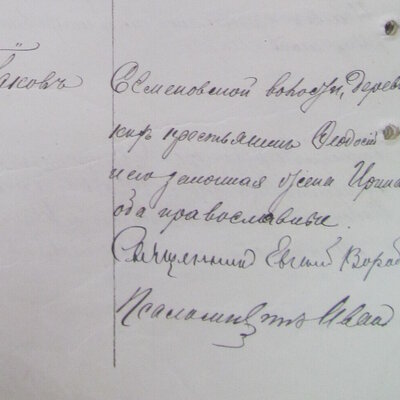 Яковъ
Семеновской волости, дерев
кир крестьянинъ Феодосій
и его законная жена Ирина
оба православные.
Священникъ Евгеній Вороб
Псаломщикъ Иван